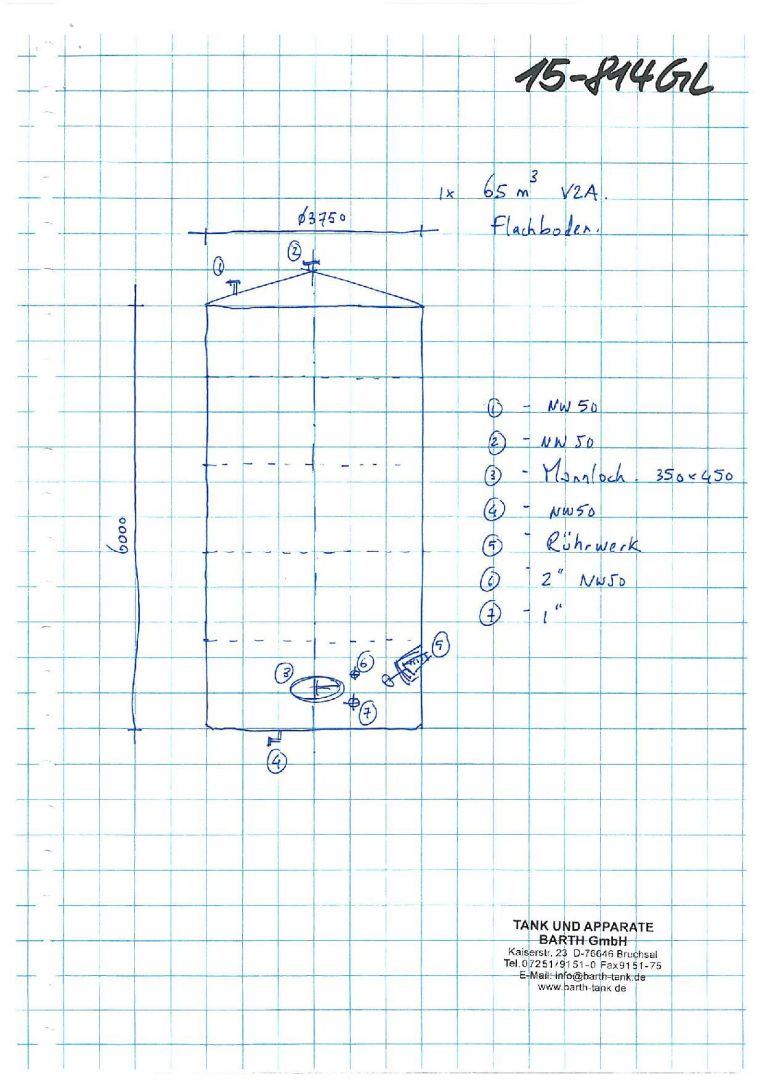 15-814GL
1x 65 m³ V2A.
Flachboden.
ø3750
①
②
6000
① - NW 50
② - NW 50
③ - Mannloch. 350 x 450
④ - NW50
⑤ - Rührwerk
⑥ - 2" NW50
⑦ - 1"
⑤
⑥
③
⑦
④
TANK UND APPARATE
BARTH GmbH
Kaiserstr. 23 D-76646 Bruchsal
Tel.07251/9151-0 Fax9151-75
E-Mail: info@barth-tank.de
www.barth-tank.de